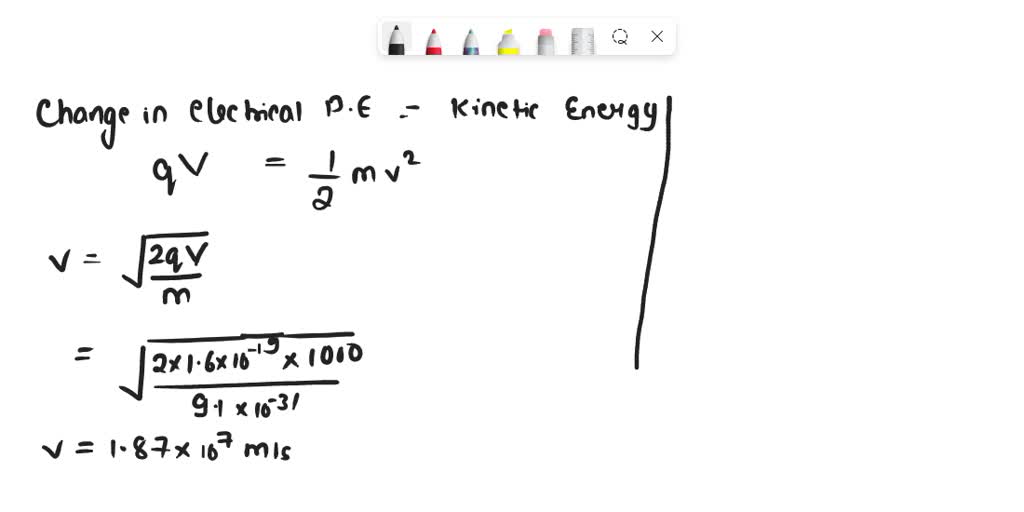 Change in electrical P.E = Kinetic Energy
qV = 1/2 mv²
v = √(2qV/m)
= √(2×1.6×10⁻¹⁹ × 1010 / 9.1 × 10⁻³¹)
v = 1.87 × 10⁷ m/s